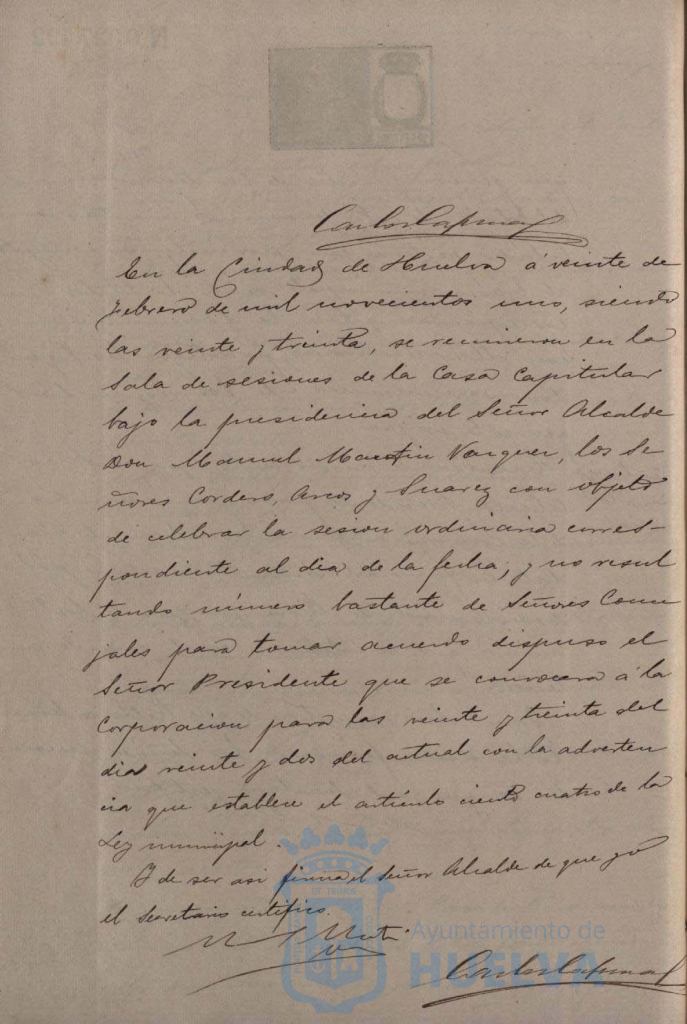 Carlos
En la Ciudad de Huelva á veinte de
Febrero de mil novecientos uno, siendo
las veinte y treinta, se reunieron en la
Sala de sesiones de la Casa Capitular
bajo la presidencia del Señor Alcalde
Don Manuel Martin Vazquez, los Se-
ñores Cordero, Arcos y Suarez con objeto
de celebrar la sesion ordinaria corres-
pondiente al dia de la fecha, y no resul
tando número bastante de Señores Conce
jales para tomar acuerdo dispuso el
Señor Presidente que se convocara á la
Corporacion para las veinte y treinta del
dia veinte y dos del actual con la adverten
cia que establece el artículo ciento cuatro de la
Ley municipal.
Y de ser asi firma el Señor Alcalde de que yó
el Secretario certifico.
Carlos
Ayuntamiento de
HUELVA